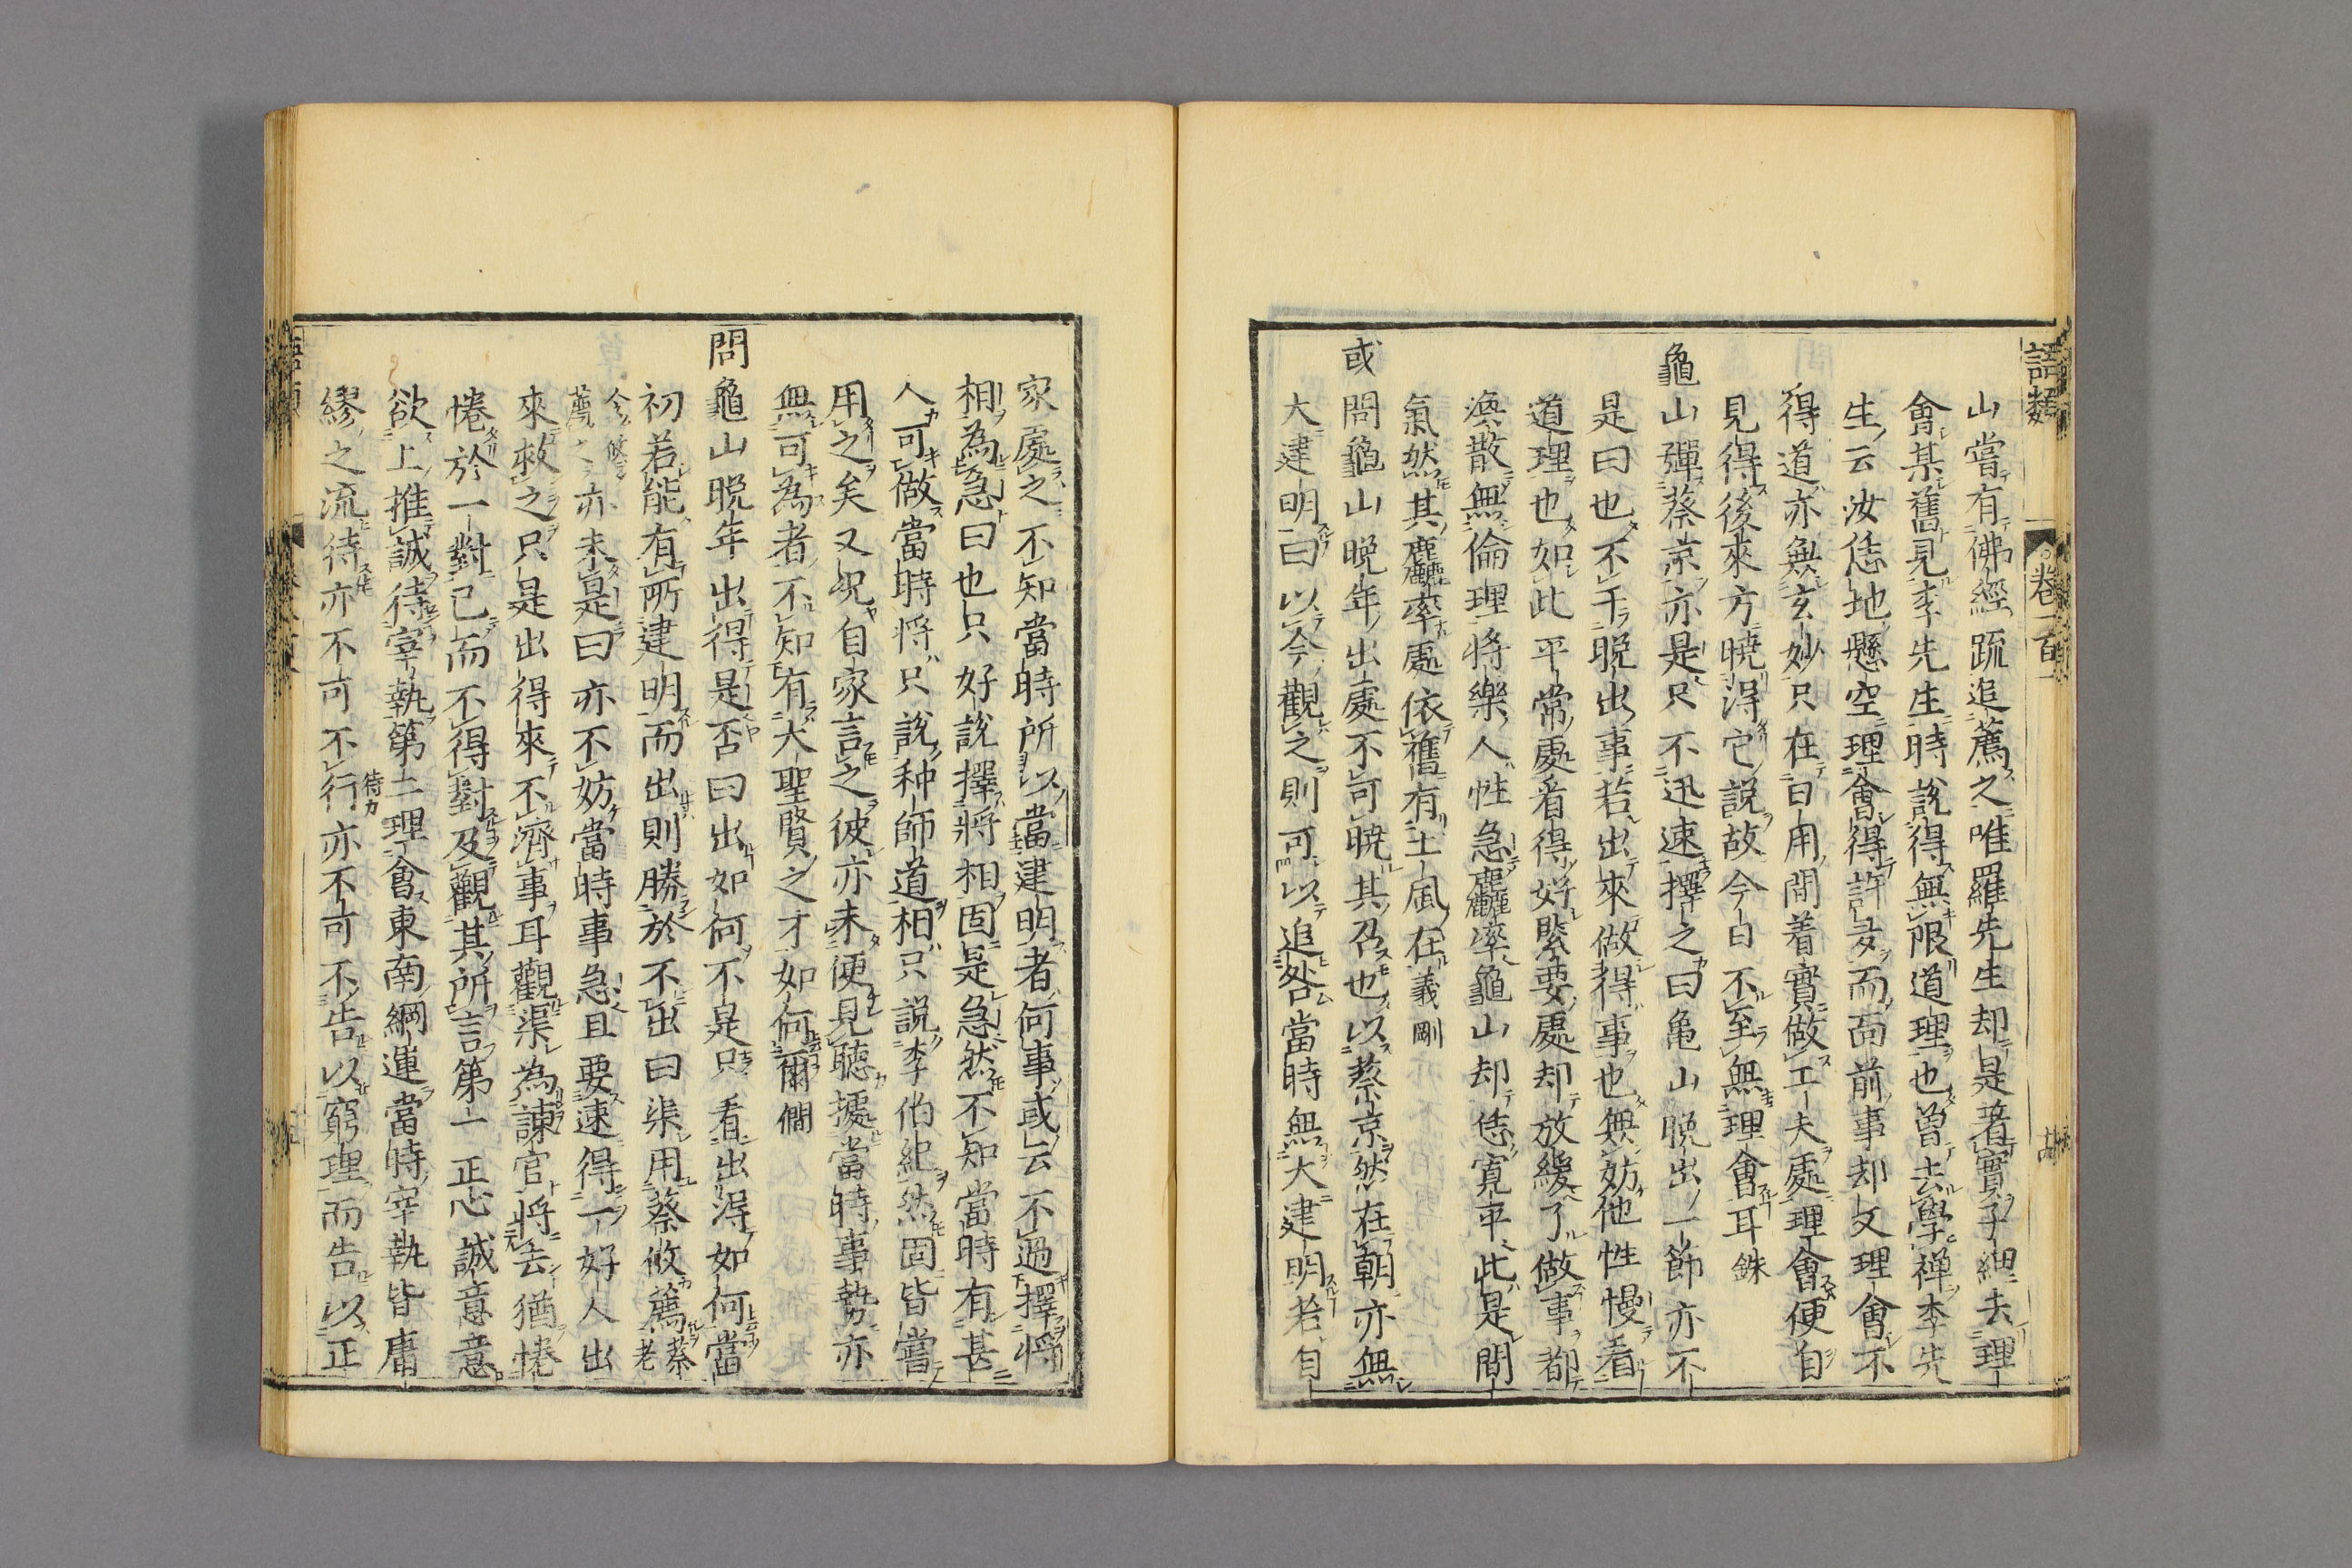 語類
卷一百一
山嘗有佛經疏追薦之唯羅先生却是著實子細去理
會某舊見李先生時說得無限道理也曾去學禪李先
生云汝恁地懸空理會得許多而面前事却又理會不
得道亦無玄妙只在日用間着實做工夫處理會便自
見得後來方曉得它說故今日不至無理會耳 銖
龜山彈蔡京亦是只不迅速擇之曰龜山晚出一節亦不
是曰也不干晚出事若出來做得事也無妨他性慢看
道理也如此平常處看得好緊要處却放緩了做事都
渙散無倫理將樂人性急麤率龜山却恁寬平此是間
氣然其麤率處依舊有土風在 義剛
或問龜山晚年出處不可曉其召也以蔡京然在朝亦無
大建明曰以今觀之則可以追咎當時無大建明若自
家處之不知當時所以當建明者何事或云不過擇將
相為急曰也只好說擇將相固是急然不知當時有甚
人可做當時將只說种師道相只說李伯紀然固皆嘗
用之矣又況自家言之彼亦未便見聽據當時事勢亦
無可為者不知有大聖賢之才如何爾 僩
問龜山晚年出得是否曰出如何不是只看出得如何當
初若能有所建明而出則勝於不出曰渠用蔡攸薦蔡老
令攸薦之亦未是曰亦不妨當時事急且要速得一好人出
來救之只是出得來不濟事耳觀渠為諫官將去猶惓
惓於一對已而不得對及觀其所言第一正心誠意意
欲上推誠待宰執第二理會東南綱運當時宰執皆庸
繆之流待亦不可不行亦不可不告以窮理而告以正
待カ